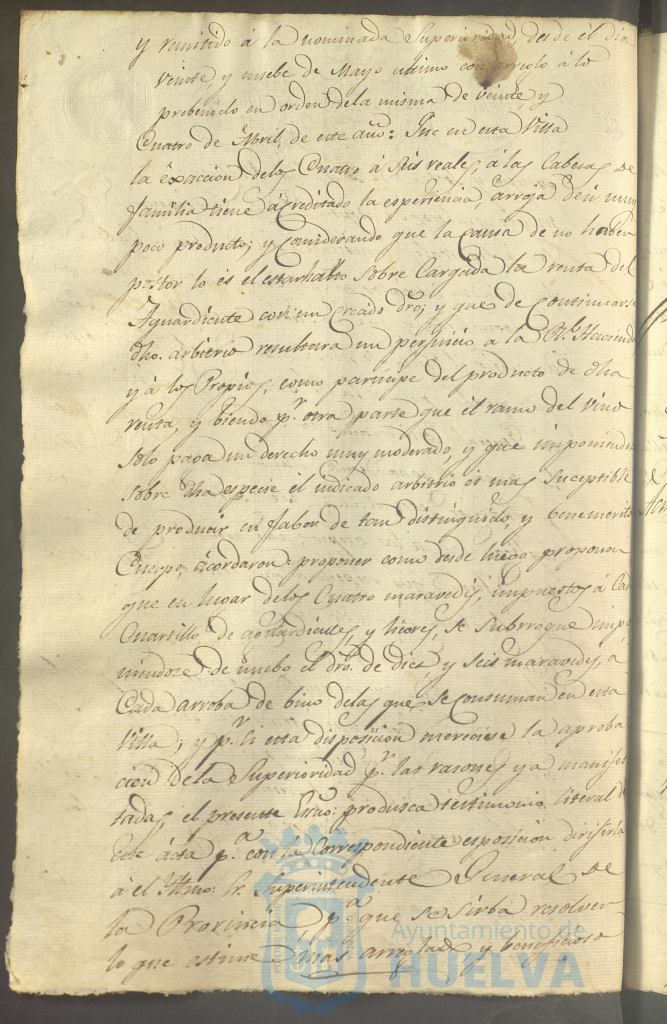 y remitido á la nominada Superioridad, desde él dia
veinte, y nuebe de Mayo ultimo con arreglo á lo
prebenido en orden dela misma de veinte, y
Cuatro de Abril, de este año: Que en esta Villa
la exaccion delos Cuatro á seis reales, á las Cabezas de
familia tiene ácreditado la esperiencia, arroja de si muy
poco producto; y Considerando que la Causa de no haber
postor lo es el estar harto sobre Cargada la renta del
Aguardiente con un Crecido dro; y que de Continuarse
dho. arbitrio resultara un perjuicio a la Rl. Hacienda
y á los Propios, como participe del producto de dha
renta, y biendo pr. otra parte que él ramo del vino
solo paga un derecho muy moderado, y que imponiendo
sobre dha especie él indicado arbitrio es mas suceptible
de producir en fabor de tan distinguido, y benemerito
Cuerpo, acordaron: proponer como desde luego proponen
que en lugar delos Cuatro maravedis, impuestos á Cada
Cuartillo, de aguardientes, y licores, se Subrrogue impo
niendose de nuebo el dro. de dies, y seis maravedis, a
Cada arroba de bino delas que se Consuman en esta
Villa; y pr. si esta disposicion mereciese la aproba
cion dela Superioridad pr. las razones ya manifes
tadas, el presente Esno: produsca testimonio literal de
este ácta pa. con la Correspondiente esposicion dirijirla
á el Illmo: Sr. Superintendente General de
la Provincia, pa. que se sirba resolver
lo que estime mas arreglado, y beneficioso
Ayuntamiento de
HUELVA